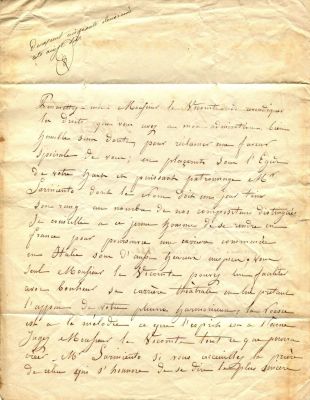 Permettez-moi Monsieur le Vicomte de
les droits que vous avez a mon admiration bien
humble sans doute, pour réclamer une faveur
spéciale de vous; en plaçant sous l'Egide
de votre haut et puissant patronnage Mr
Sarmiento; dont le Nom doit un jour tenir
son rang au nombre de nos compositeurs distingués
Je conseille a ce jeune homme de se rendre en
france pour poursuivre une carriere commencée
en Italie sous d'aussi heureux auspices. Vous
seul Monsieur le Vicomte pouvez lui faciliter
avec bonheur sa carrière théâtrale en lui prêtant
l'appui de votre plume harmonieuse; la Poésie
est a la mélodie ce que l'esprit est a l'ame
Jugez Monsieur le Vicomte tout ce que pourra
créer Mr Sarmiento si vous accueillez la prière
de celui qui s'honore de se dire le plus sincère